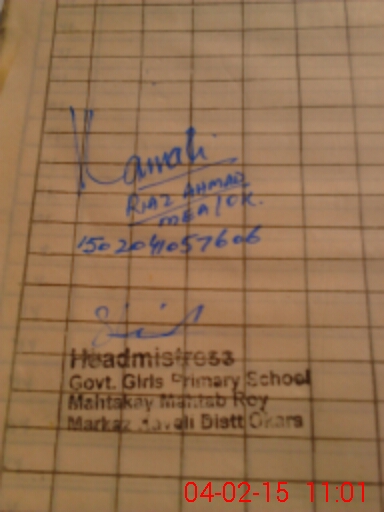 RIAZ AHMAD
MEA/OK.
1502041057606
Headmistress
Govt. Girls Primary School
Mahtakay Mahtab Roy
Markaz Haveli Distt Okara
04-02-15 11:01